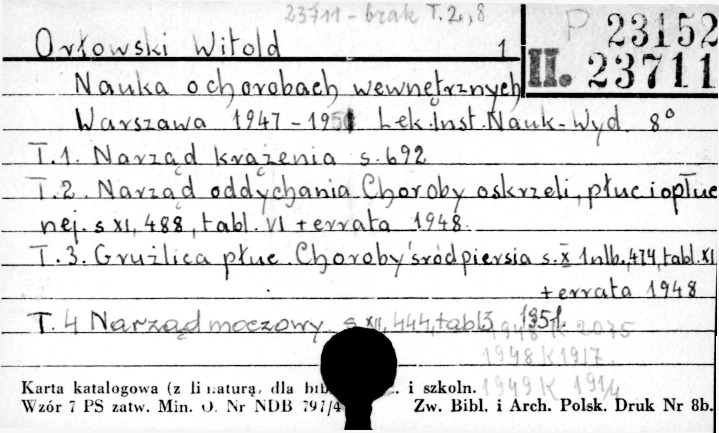 23711 - brak T. 2, 8
P 23152
Orłowski Witold 1
II. 23711
Nauka o chorobach wewnętrznych
Warszawa 1947 - 1951 Lek. Inst. Nauk.-Wyd. 8°
T.1. Narząd krążenia s. 692
T.2. Narząd oddychania. Choroby oskrzeli, płuc i opłuc
nej. s XI, 488, tabl. VI + errata 1948.
T.3. Gruźlica płuc. Choroby śródpiersia s. X 1nlb., 474, tabl. XI
+ errata 1948
T. 4 Narząd moczowy s. XII, 444, tabl 3 1951.
1948 K 2075
1948 K 1917.
1949 K 1914
Karta katalogowa (z liniaturą, dla bibl. i szkoln.
Wzór 7 PS zatw. Min. O. Nr NDB 797/4 Zw. Bibl. i Arch. Polsk. Druk Nr 8b.